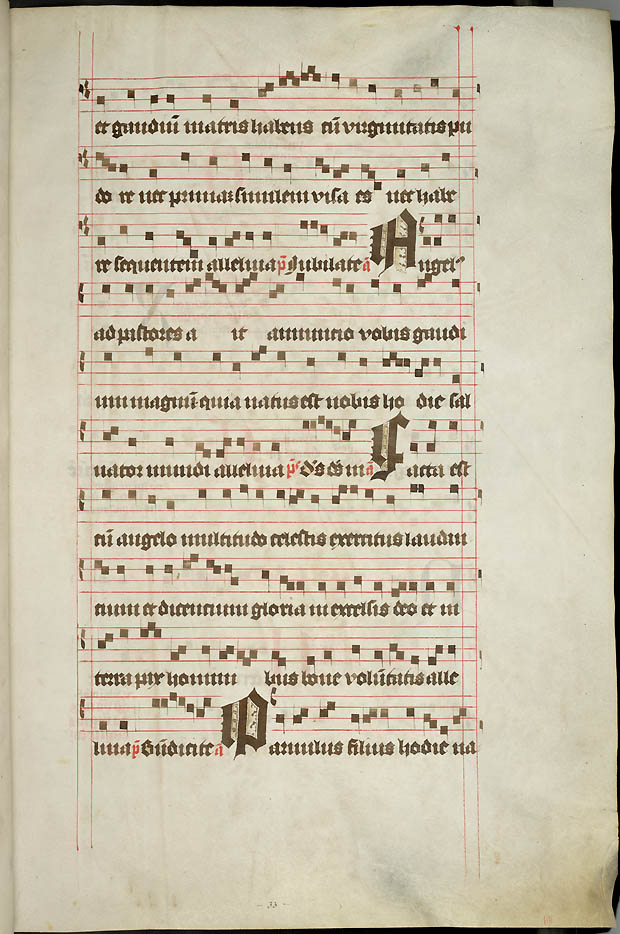 et gaudiū matris habens cū virginitatis pu
do re nec primam similem visa es nec habe
re sequentem alleluia p̄ Jubilate a Angel9
ad pastores a it annuncio vobis gaudi
um magnū quia natus est nobis ho die sal
uator mundi alleluia p̄s a Facta est
cū angelo multitudo celestis exercitus laudan
tium et dicentium gloria in excelsis deo et in
terra pax homini bus bone volūtatis alle
luia p̄ Bn̄dicite a Paruulus filius hodie na
33